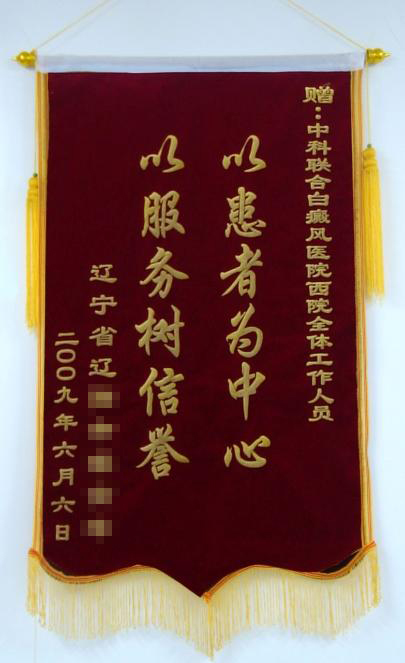 赠：中科联合白癜风医院西院全体工作人员
以患者为中心
以服务树信誉
辽宁省辽
二00九年六月六日